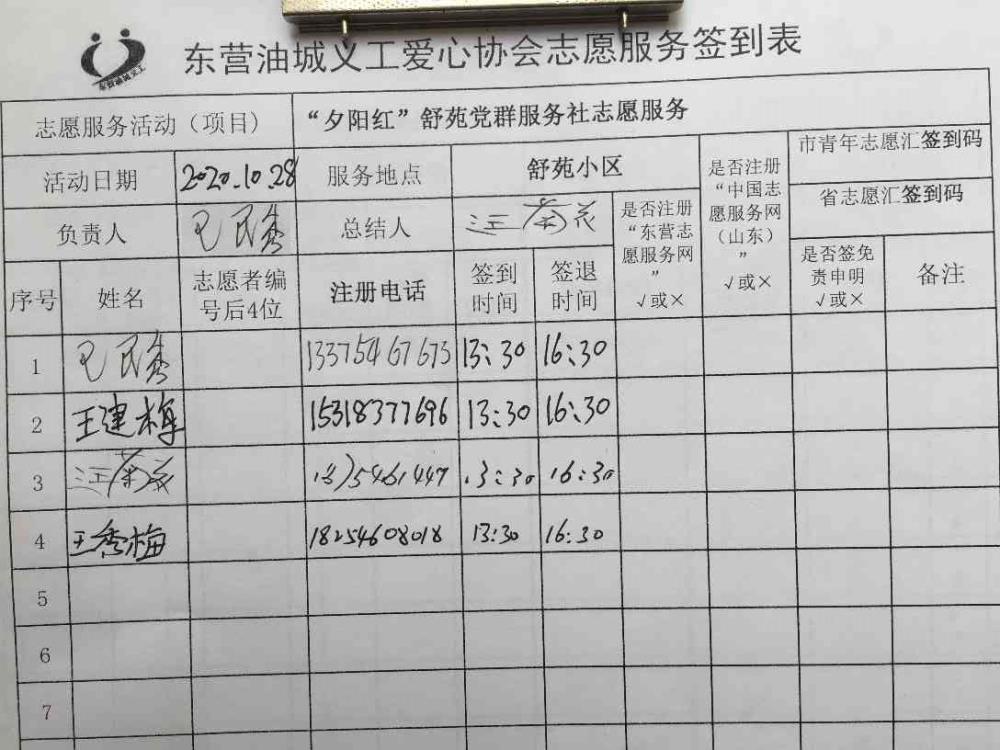 东营油城义工爱心协会志愿服务签到表
志愿服务活动（项目） “夕阳红”舒苑党群服务社志愿服务
活动日期 2020.10.28 服务地点 舒苑小区 是否注册“中国志愿服务网（山东）” √或× 市青年志愿汇签到码
省志愿汇签到码
负责人 总结人 汪菊花 是否注册“东营志愿服务网” √或× 是否签免责申明 √或× 备注
序号 姓名 志愿者编号后4位 注册电话 签到时间 签退时间
1 13375467675 13:30 16:30
2 王建梅 15318377696 13:30 16:30
3 汪菊花 13:30 16:30
4 王秀梅 18254608018 13:30 16:30
5
6
7